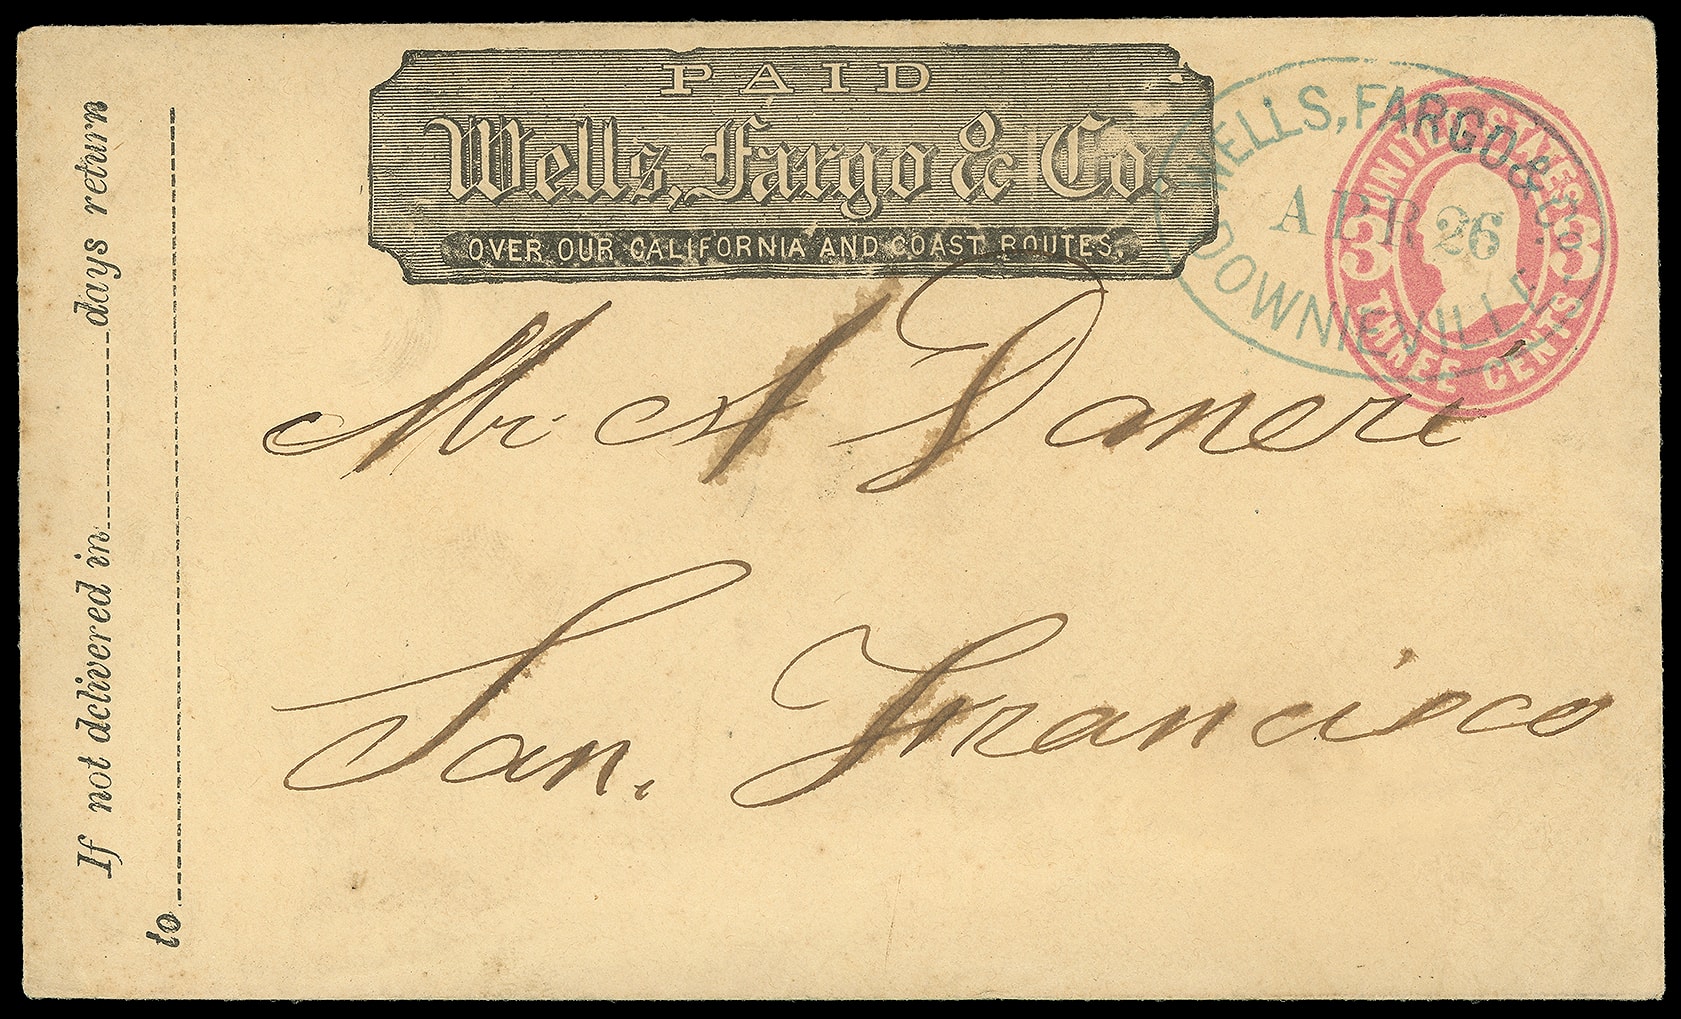 PAID
Wells, Fargo & Co.
OVER OUR CALIFORNIA AND COAST ROUTES.
WELLS, FARGO & CO.
APR 26
DOWNIEVILLE
UNITED STATES
3 3
THREE CENTS
Mr. A Daneri
San. Francisco
If not delivered in days return
to